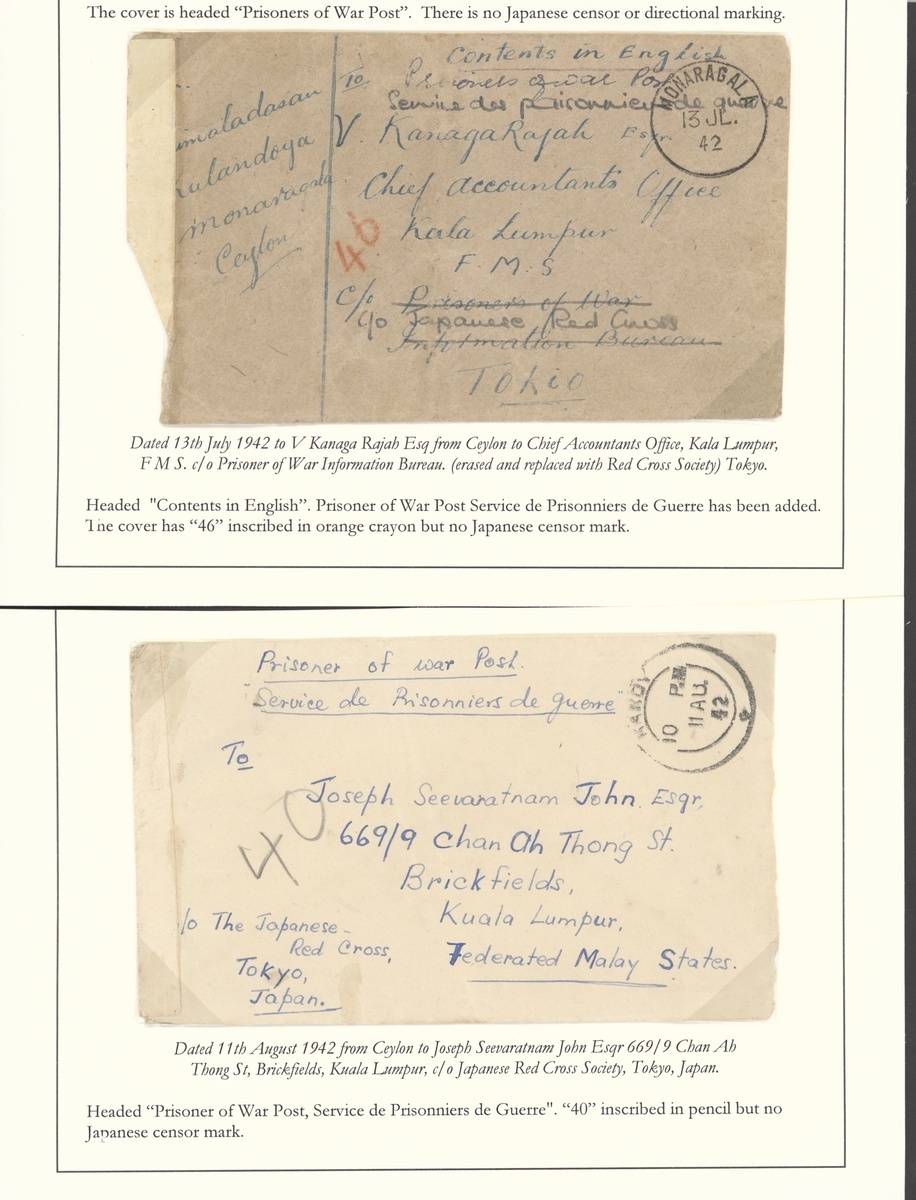 The cover is headed “Prisoners of War Post”. There is no Japanese censor or directional marking.
Contents in English
To Prisoners of war Post
Service des prisonniers de guerre
MONARAGALA
13 JL.
42
V. KanagaRajah Esqr.
Chief Accountants Office
Kala Lumpur
F. M. S
46
c/o Prisoners of War
c/o Japanese Red Cross
Information Bureau
Tokio
maladasan
ulandoya
monaragala
Ceylon
Dated 13th July 1942 to V Kanaga Rajah Esq from Ceylon to Chief Accountants Office, Kala Lumpur,
F M S. c/o Prisoner of War Information Bureau. (erased and replaced with Red Cross Society) Tokyo.
Headed "Contents in English”. Prisoner of War Post Service de Prisonniers de Guerre has been added.
The cover has “46” inscribed in orange crayon but no Japanese censor mark.
Prisoner of war Post.
"Service de Prisonniers de guerre"
KANDY
10 P.M
11 AU
42
To
Joseph Seevaratnam John Esqr,
669/9 Chan Ah Thong St.
Brickfields,
Kuala Lumpur,
Federated Malay States.
40
c/o The Japanese-
Red Cross,
Tokyo,
Japan.
Dated 11th August 1942 from Ceylon to Joseph Seevaratnam John Esqr 669/9 Chan Ah
Thong St, Brickfields, Kuala Lumpur, c/o Japanese Red Cross Society, Tokyo, Japan.
Headed “Prisoner of War Post, Service de Prisonniers de Guerre". “40” inscribed in pencil but no
Japanese censor mark.